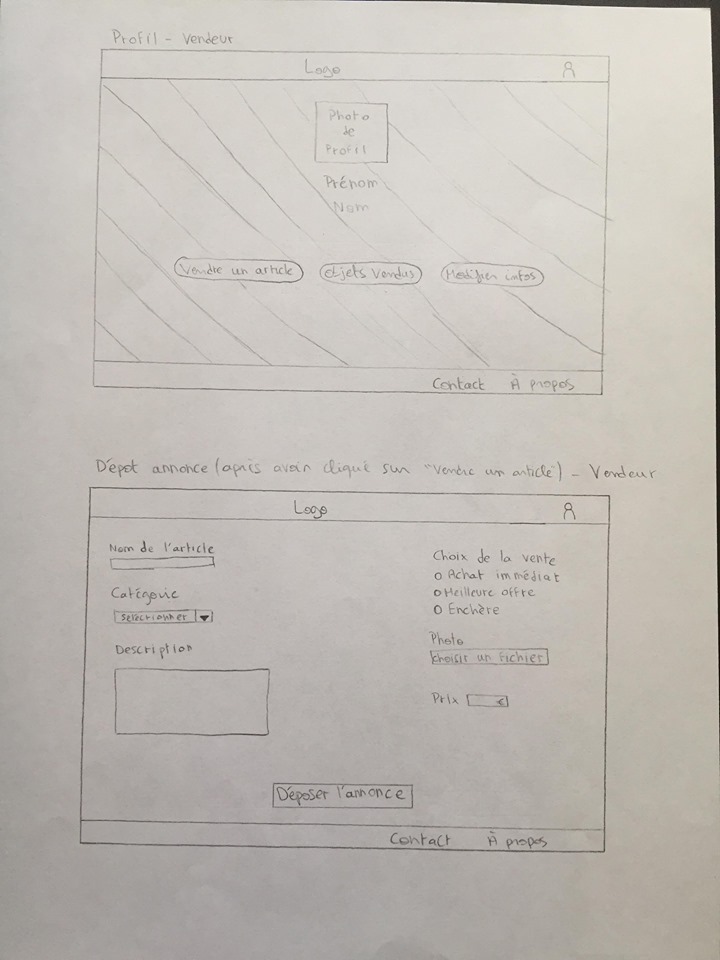 Profil - Vendeur
Logo
Photo
de
Profil
Prénom
Nom
Vendre un article
Objets Vendus
Modifier infos
Contact
À propos
Dépot annonce (après avoir cliqué sur "Vendre un article") - Vendeur
Logo
Nom de l'article
Catégorie
Sélectionner
Description
Choix de la vente
Achat immédiat
Meilleure offre
Enchère
Photo
choisir un fichier
Prix €
Déposer l'annonce
Contact
À propos